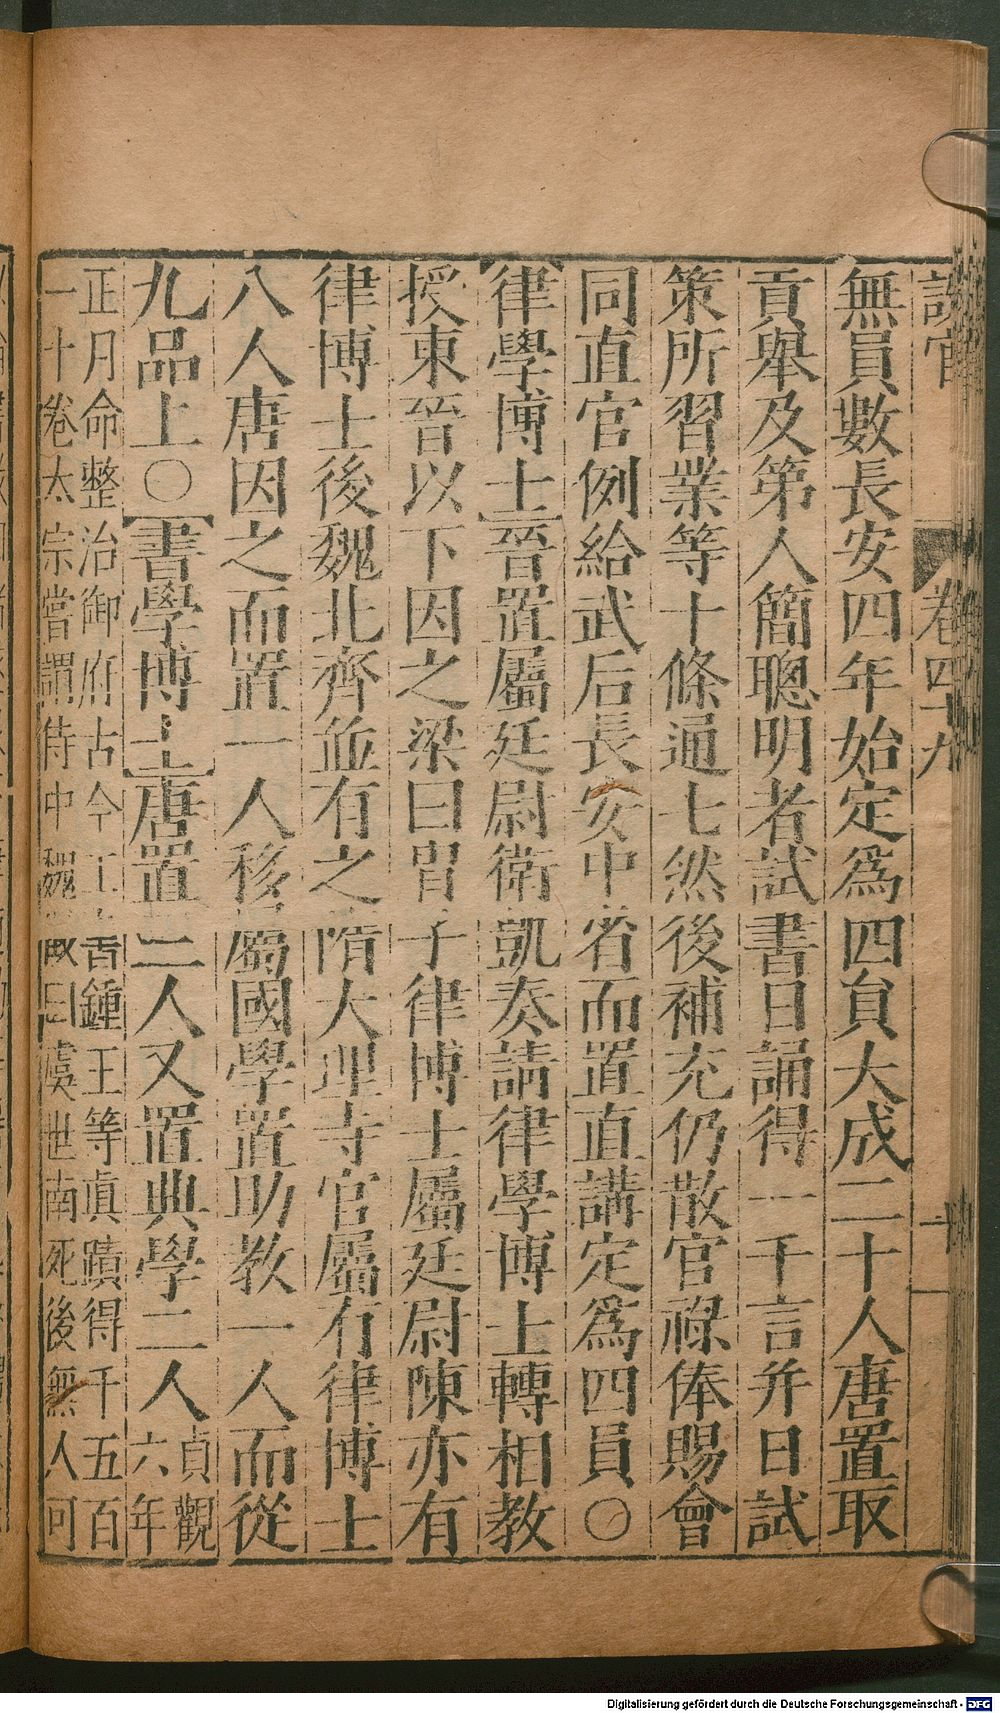 卷四十九
無員數長安四年始定爲四員大成二十人唐置取
貢舉及第人簡聰明者試書日誦得一千言并日試
策所習業等十條通七然後補充仍散官祿俸賜會
同直官例給武后長安中省而置直講定爲四員○
律學博士晉置屬廷尉衛覬奏請律學博士轉相教
授東晉以下因之梁曰冑子律博士屬廷尉陳亦有
律博士後魏北齊並有之隋大理寺官屬有律博士
八人唐因之而置一人移屬國學置助教一人而從
九品上○書學博士唐置二人又置典學二人貞觀六年
正月命整治御府古今工書鍾王等眞蹟得千五百
一十卷太宗嘗謂侍中魏徵曰虞世南死後無人可
Digitalisierung gefördert durch die Deutsche Forschungsgemeinschaft - DFG